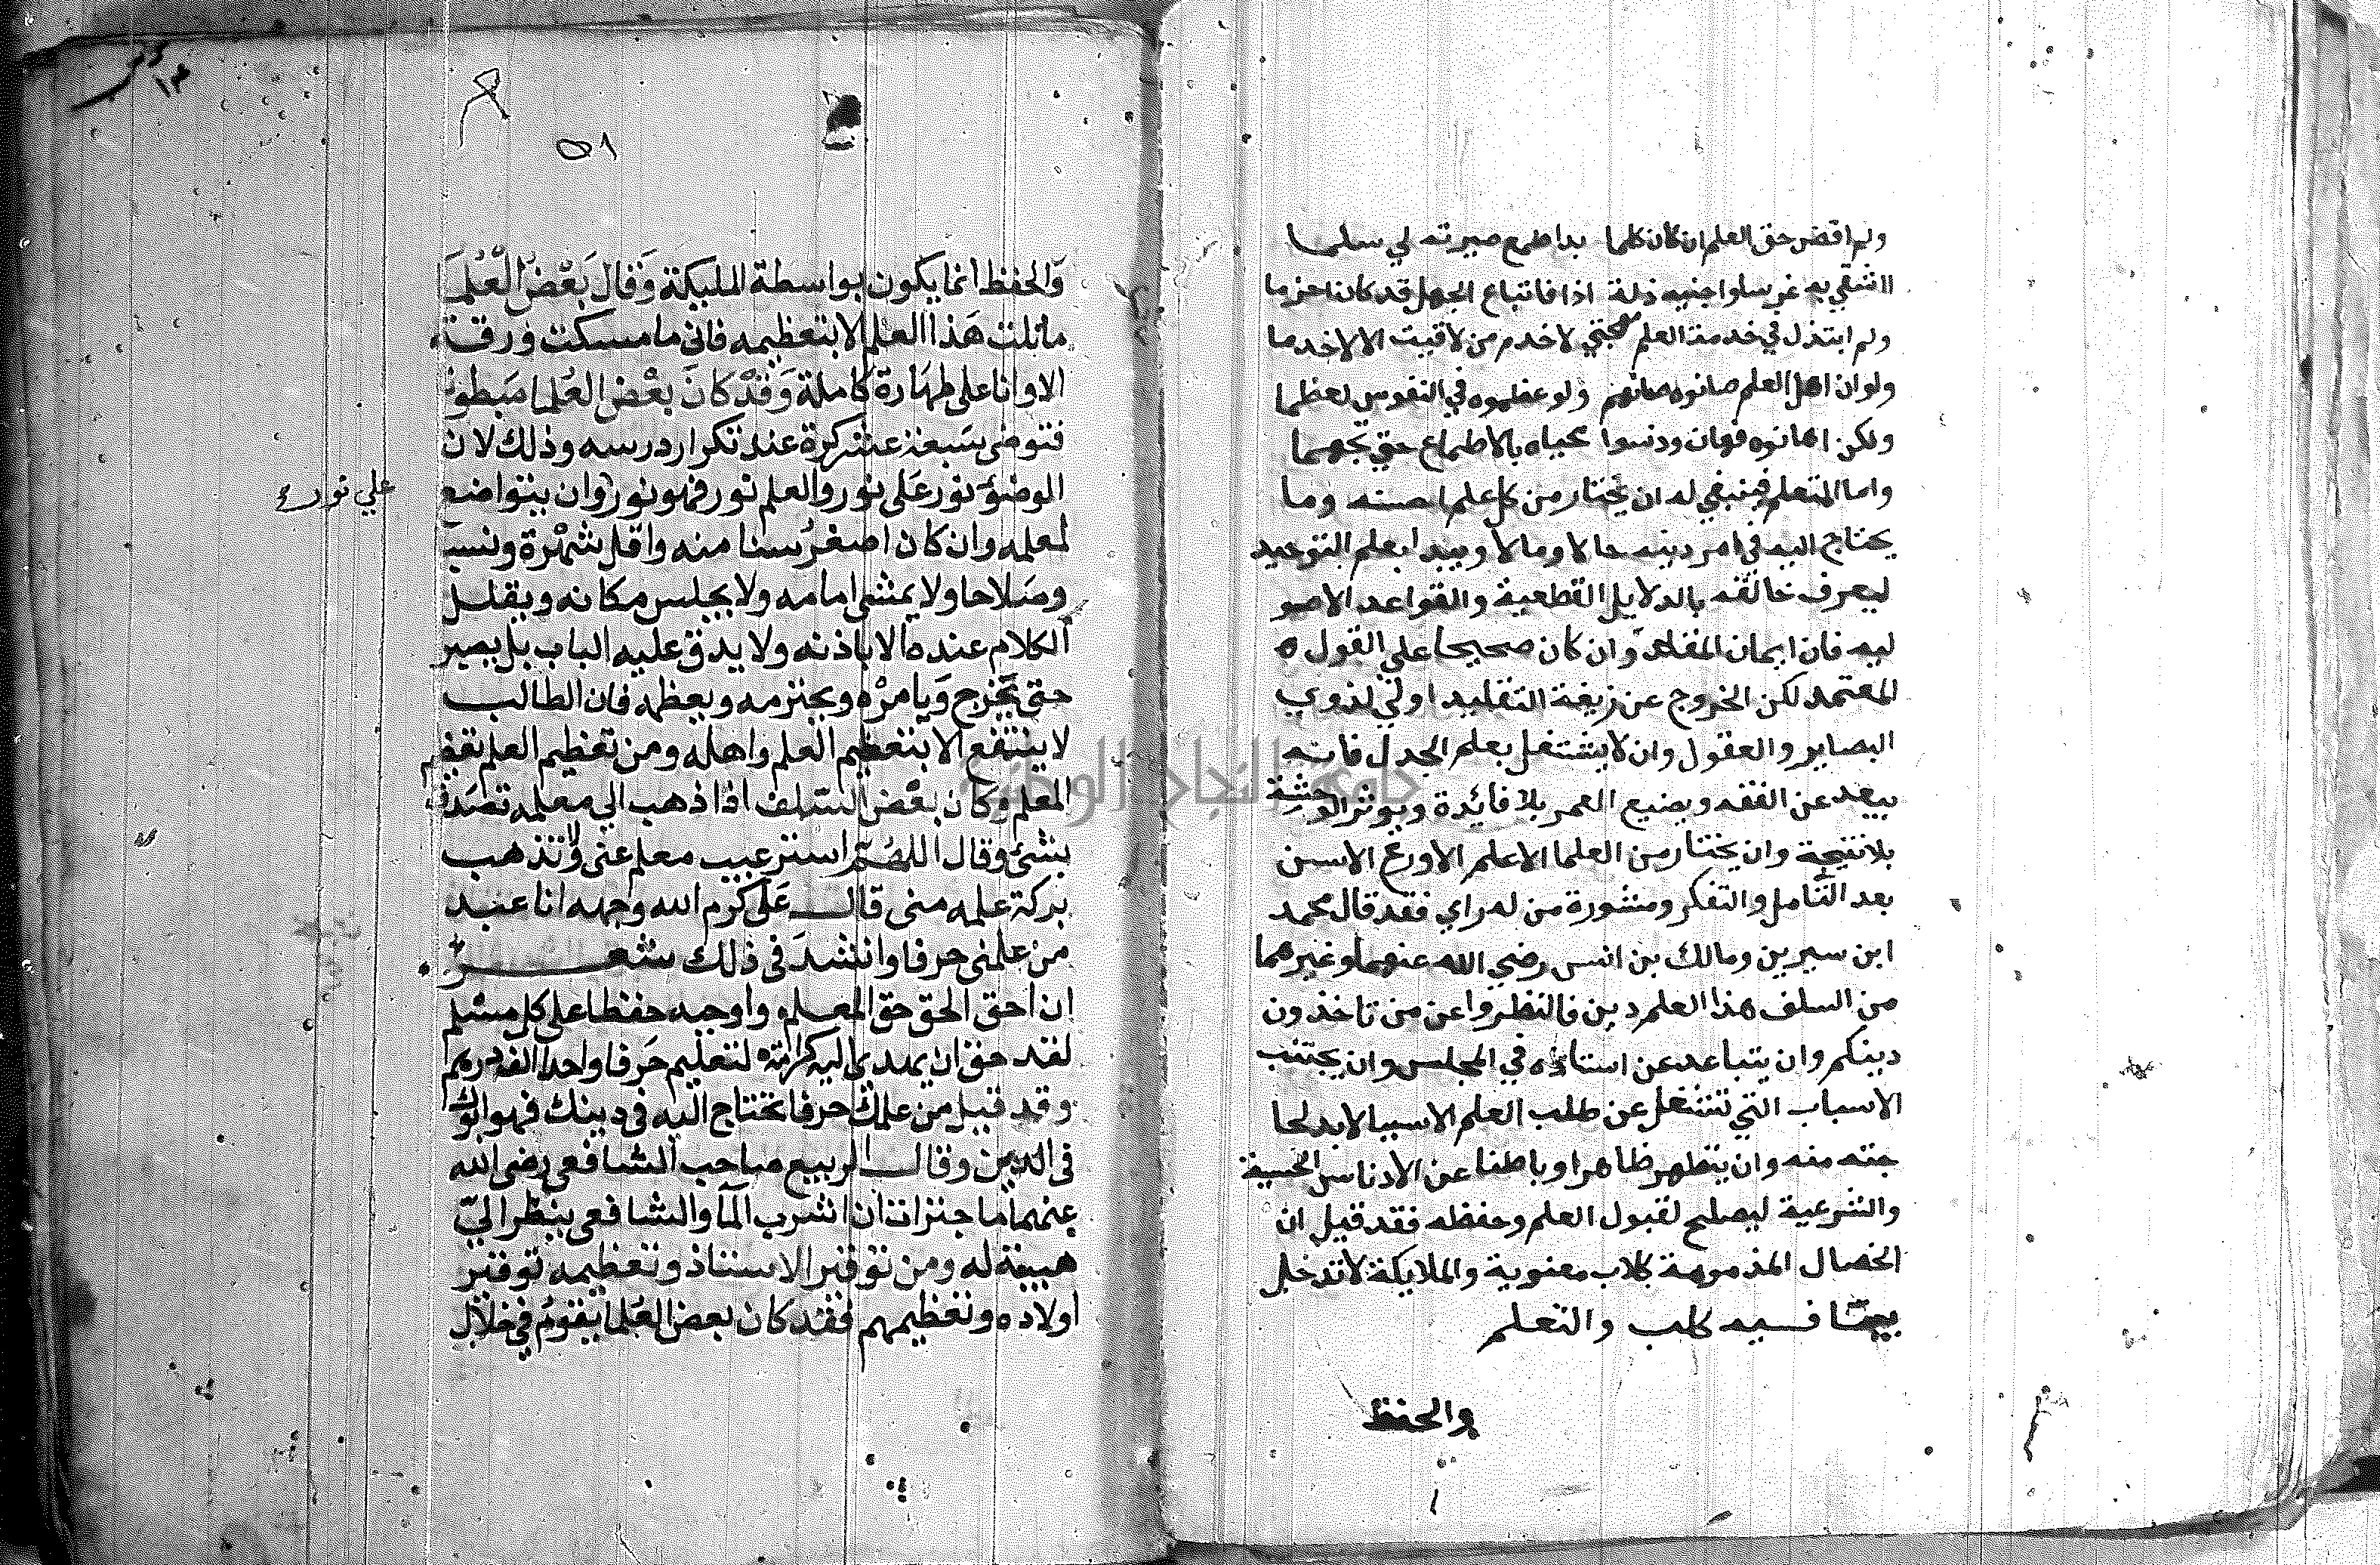 ولم اقض حق العلم ان كان كلما بدا طمع صيرته لي سلما
ااشقي به غرسا واجنيه ذلة اذا فاتباع الجهل قد كان احزما
ولم ابتذل في خدمة العلم مهجتي لاخدم من لاقيت الا لاخدما
ولو ان اهل العلم صانوه صانهم ولو عظموه في النفوس لعظما
ولكن اهانوه فهان ودنسوا محياه بالاطماع حتى تجهما
واما المتعلم فينبغي له ان يختار من كل علم احسنه وما
يحتاج اليه في امر دينه حالا ومالا ويبدا بعلم التوحيد
ليعرف خالقه بالدلايل القطعية والقواعد الاصو
ليه فان ايمان المقلد وان كان صحيحا علي القول ه
المعتمد لكن الخروج عن زيغة التقليد اولي لذوي
البصاير والعقول وان لا يشتغل بعلم الجدل فانه
يبعد عن الفقه ويضيع العمر بلا فائدة ويوثر الوحشة
بلا نتيجة وان يختار من العلما الاعلم الاورع الاسن
بعد التامل والتفكر ومشورة من له راي فقد قال محمد
ابن سيرين ومالك بن انس رضي الله عنهما وغيرهما
من السلف هذا العلم دين فالنظروا عن من تاخذون
دينكم وان يتباعد عن استاذه في المجلس وان يجتنب
الاسباب التي تشغل عن طلب العلم الا سببا لا بد لحا
جته منه وان يتطهر ظاهرا وباطنا عن الادناس الحسية
والشرعية ليصلح لقبول العلم وحفظه فقد قيل ان
الخصال المذمومة كلاب معنوية والملايكة لا تدخل
بيتا فيه كلب والتعلم
والحفظ
٥١
والحفظ انما يكون بواسطة المليكة وقال بعض العلما
ما نلت هذا العلم الا بتعظيمه فاني ما مسكت ورقة
الا وانا على طهارة كاملة وقد كان بعض العلما مبطون
فتوضى سبعة عشر كرة عند تكرار درسه وذلك لان
الوضؤ نور على نور والعلم نور فهو نور وان يتواضع
علي نور
لمعلمه وان كان اصغر سنا منه واقل شهرة ونسبا
وصلاحا ولا يمشى امامه ولا يجلس مكانه ويقلل
الكلام عنده الا باذنه ولا يدق عليه الباب بل يصبر
حتى يخرج ويامره ويحترمه ويعظمه فان الطالب
لا ينتفع الا بتعظيم العلم واهله ومن تعظيم العلم تعظيم
المعلم وكان بعض السلف اذا ذهب الي معلمه تصدق
بشئ وقال اللهم استر عيب معلم عنى ولا تذهب
بركة علمه منى قال على كرم الله وجهه انا عبد
من علمنى حرفا وانشد فى ذلك شعر
ان احق الحق حق المعلم واوجبه حفظا على كل مسلم
لقد حق ان يهدى اليه كرامة لتعليم حرفا واحدا الف درهم
وقد قيل من علمك حرفا تحتاج اليه فى دينك فهو ابوك
فى الدين وقال الربيع صاحب الشافعى رضى الله
عنهما ما اجترات ان اشرب المآ والشافعى ينظر اليّ
هيبة له ومن توقير الاستاذ وتعظيمه توقير
اولاده وتعظيمهم فقد كان بعض العلما يقوم في خلال